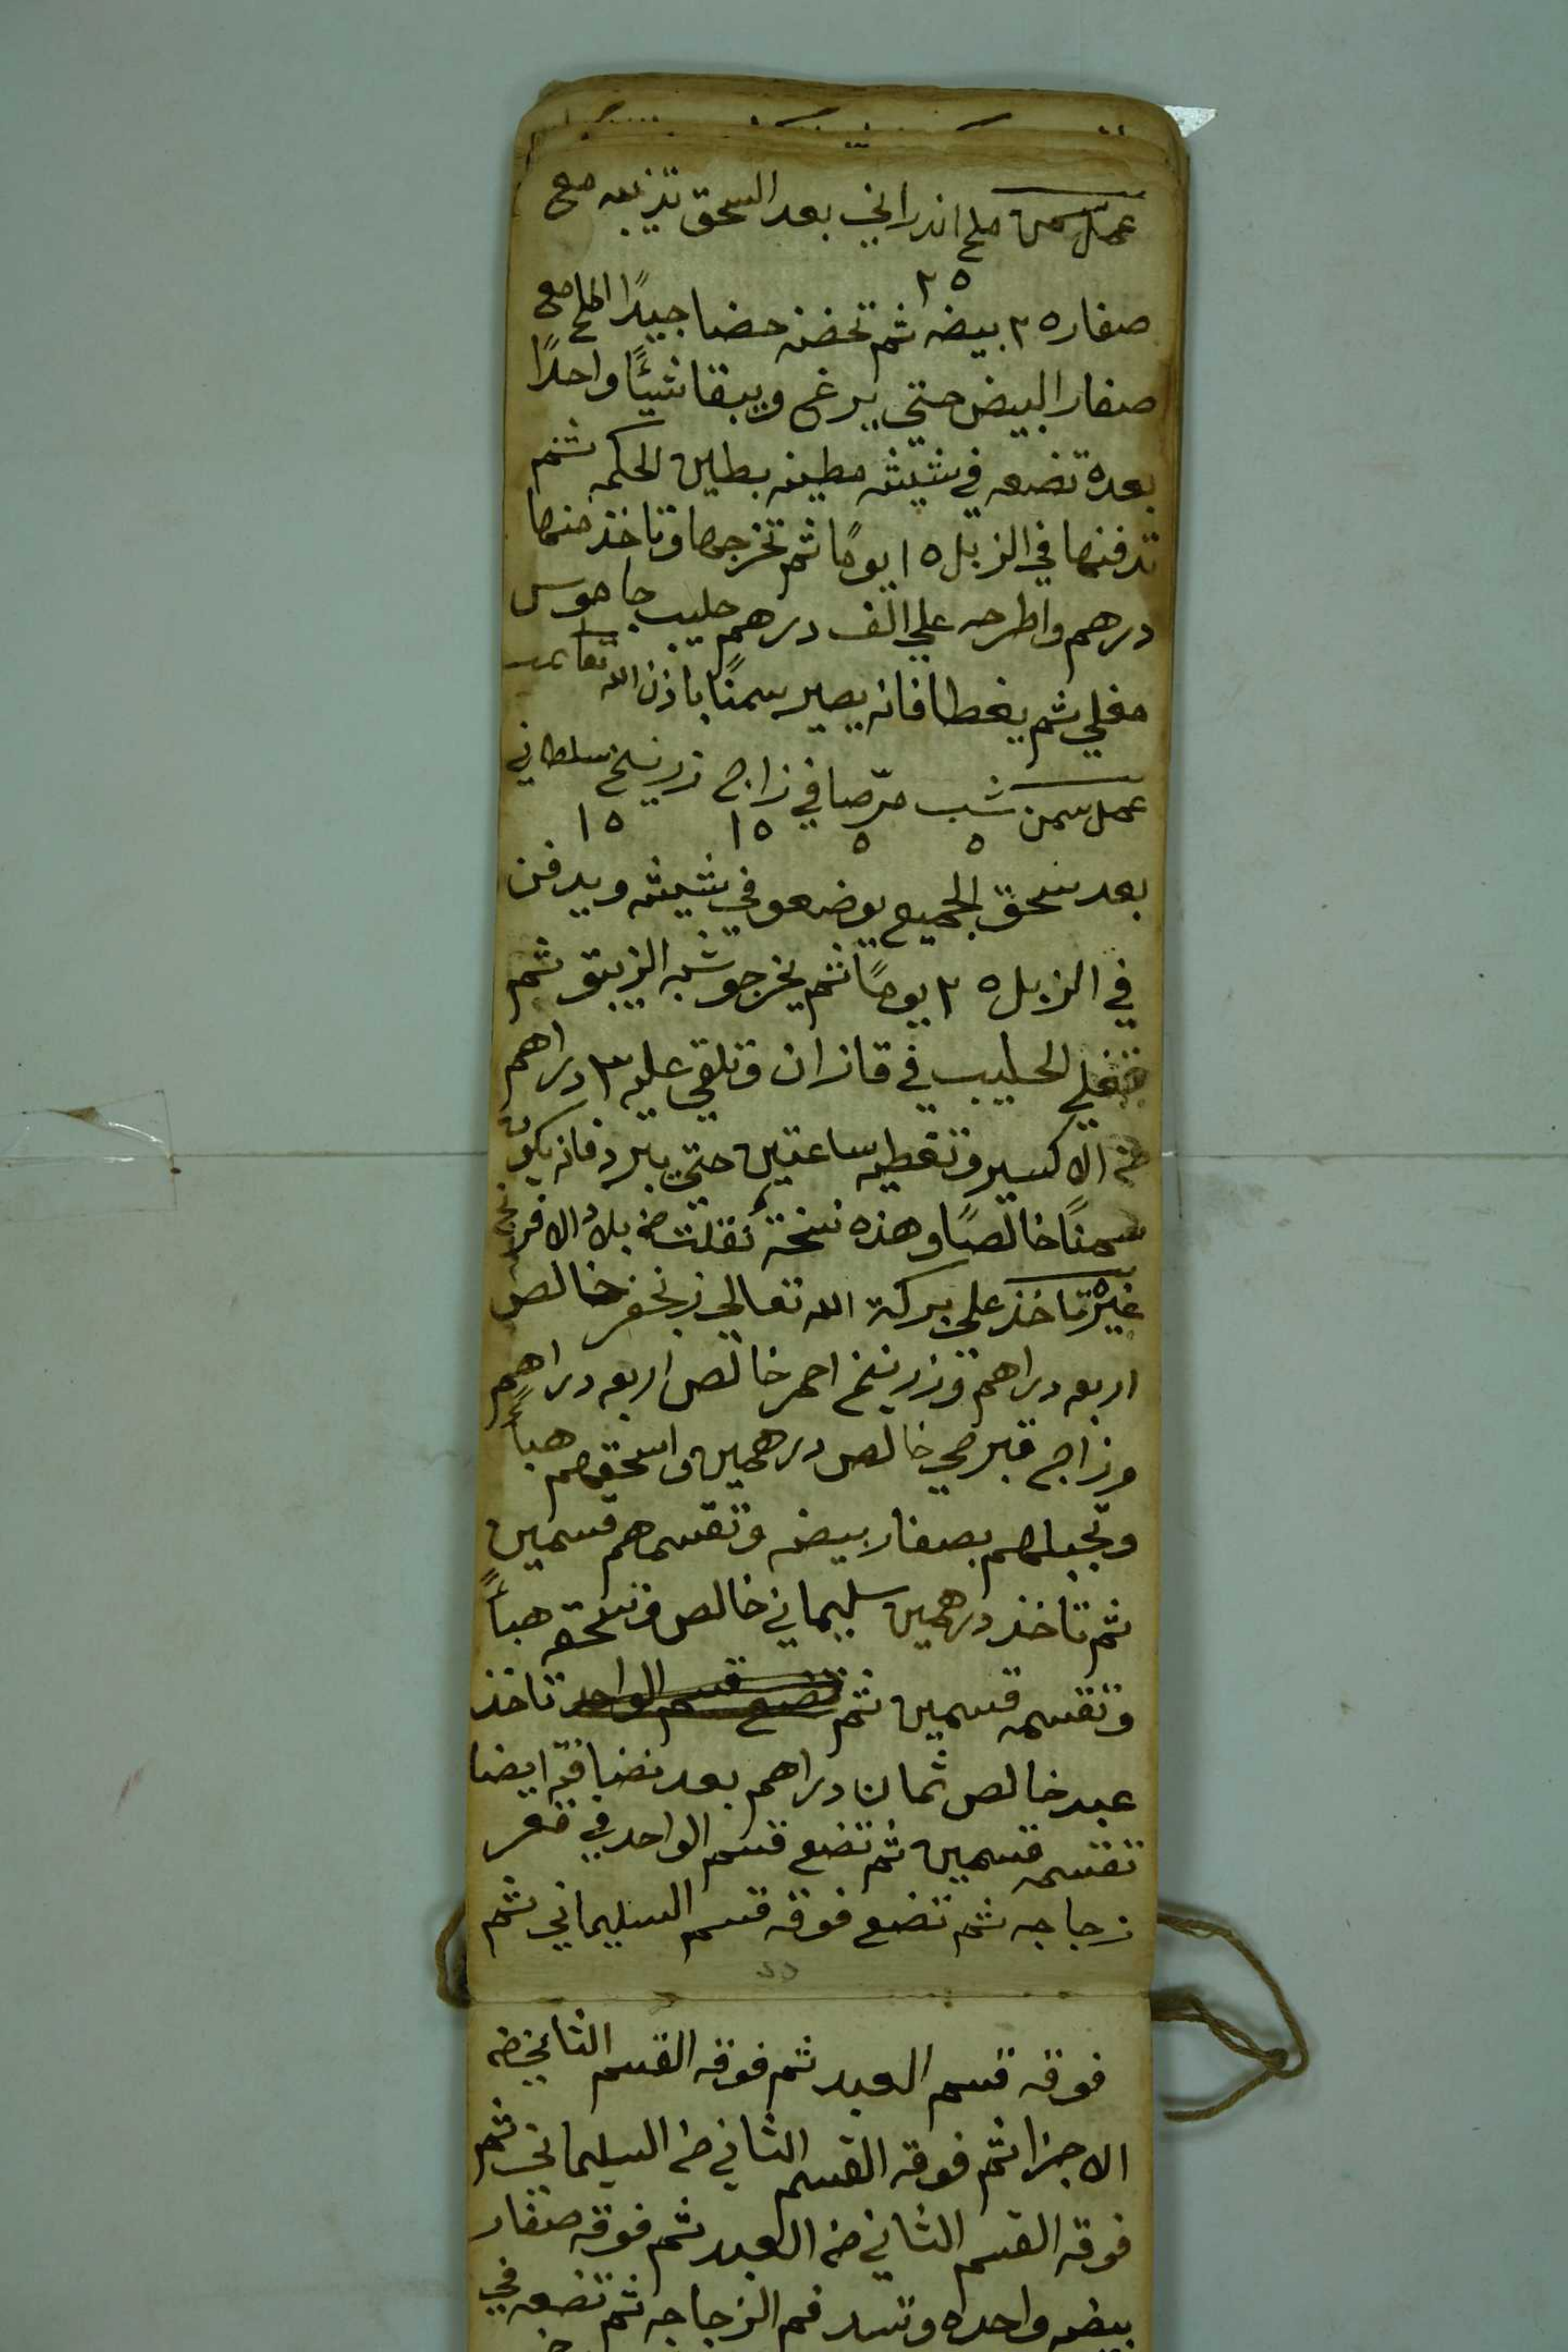 عمل سمن ملح اندراني بعد السحق تذيبه مع
٢٥
صفار ٢٥ بيضه ثم تخضه خضا جيدًا الملح مع
صفار البيض حتي يرغي ويبقا شيئًا واحدًا
بعده تضعه في شيشه مطينه بطين الحكمه ثم
تدفنها في الزبل ١٥ يومًا ثم تخرجها وتاخذ منها
درهم واطرحه علي الف درهم حليب جاموس
مغلي ثم يغطا فانه يصير سمنًا باذن الله تعا
عمل سمن شب مرّ صافي زاج زرنيخ سلطاني
٥ ٥ ١٥ ١٥
بعد سحق الجميع يوضعو في شيشه ويدفن
في الزبل ٢٥ يومًا ثم يخرجو شبه الزيبق ثم
تغلي الحليب في قازان وتلقي عليه ٣ دراهم
من الاكسير وتغطيه ساعتين حتي يبرد فانه يكون
سمنًا خالصًا وهذه نسخة نقلت من بلاد الافرنج
غيره تاخذ علي بركة الله تعالي زنجفر خالص
اربعه دراهم وزرنيخ احمر خالص اربعه دراهم
وزاج قبرصي خالص درهمين واسحقهم هباً
وتجبلهم بصفار بيضه وتقسمهم قسمين
ثم تاخذ درهمين سليماني خالص وتسحقه هباً
وتقسمه قسمين ثم تضع قسم الواحد تاخذ
عبد خالص ثمان دراهم بعد نضافته ايضا
تقسمه قسمين ثم تضع قسم الواحد في قعر
زجاجه ثم تضع فوقه قسم السليماني ثم
فوقه قسم العبد ثم فوقه القسم الثاني من
الاجزا ثم فوقه القسم الثاني من السليماني ثم
فوقه القسم الثاني من العبد ثم فوقه صفار
بيضه واحده وتسد فم الزجاجه ثم تضعه في